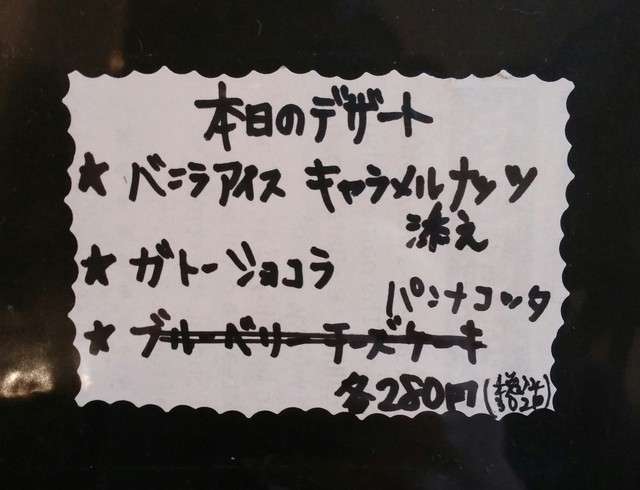 本日のデザート
★ バニラアイス キャラメルナッツ
添え
★ ガトーショコラ
パンナコッタ
★ ブルーベリーチーズケーキ
各280円(税込302円)